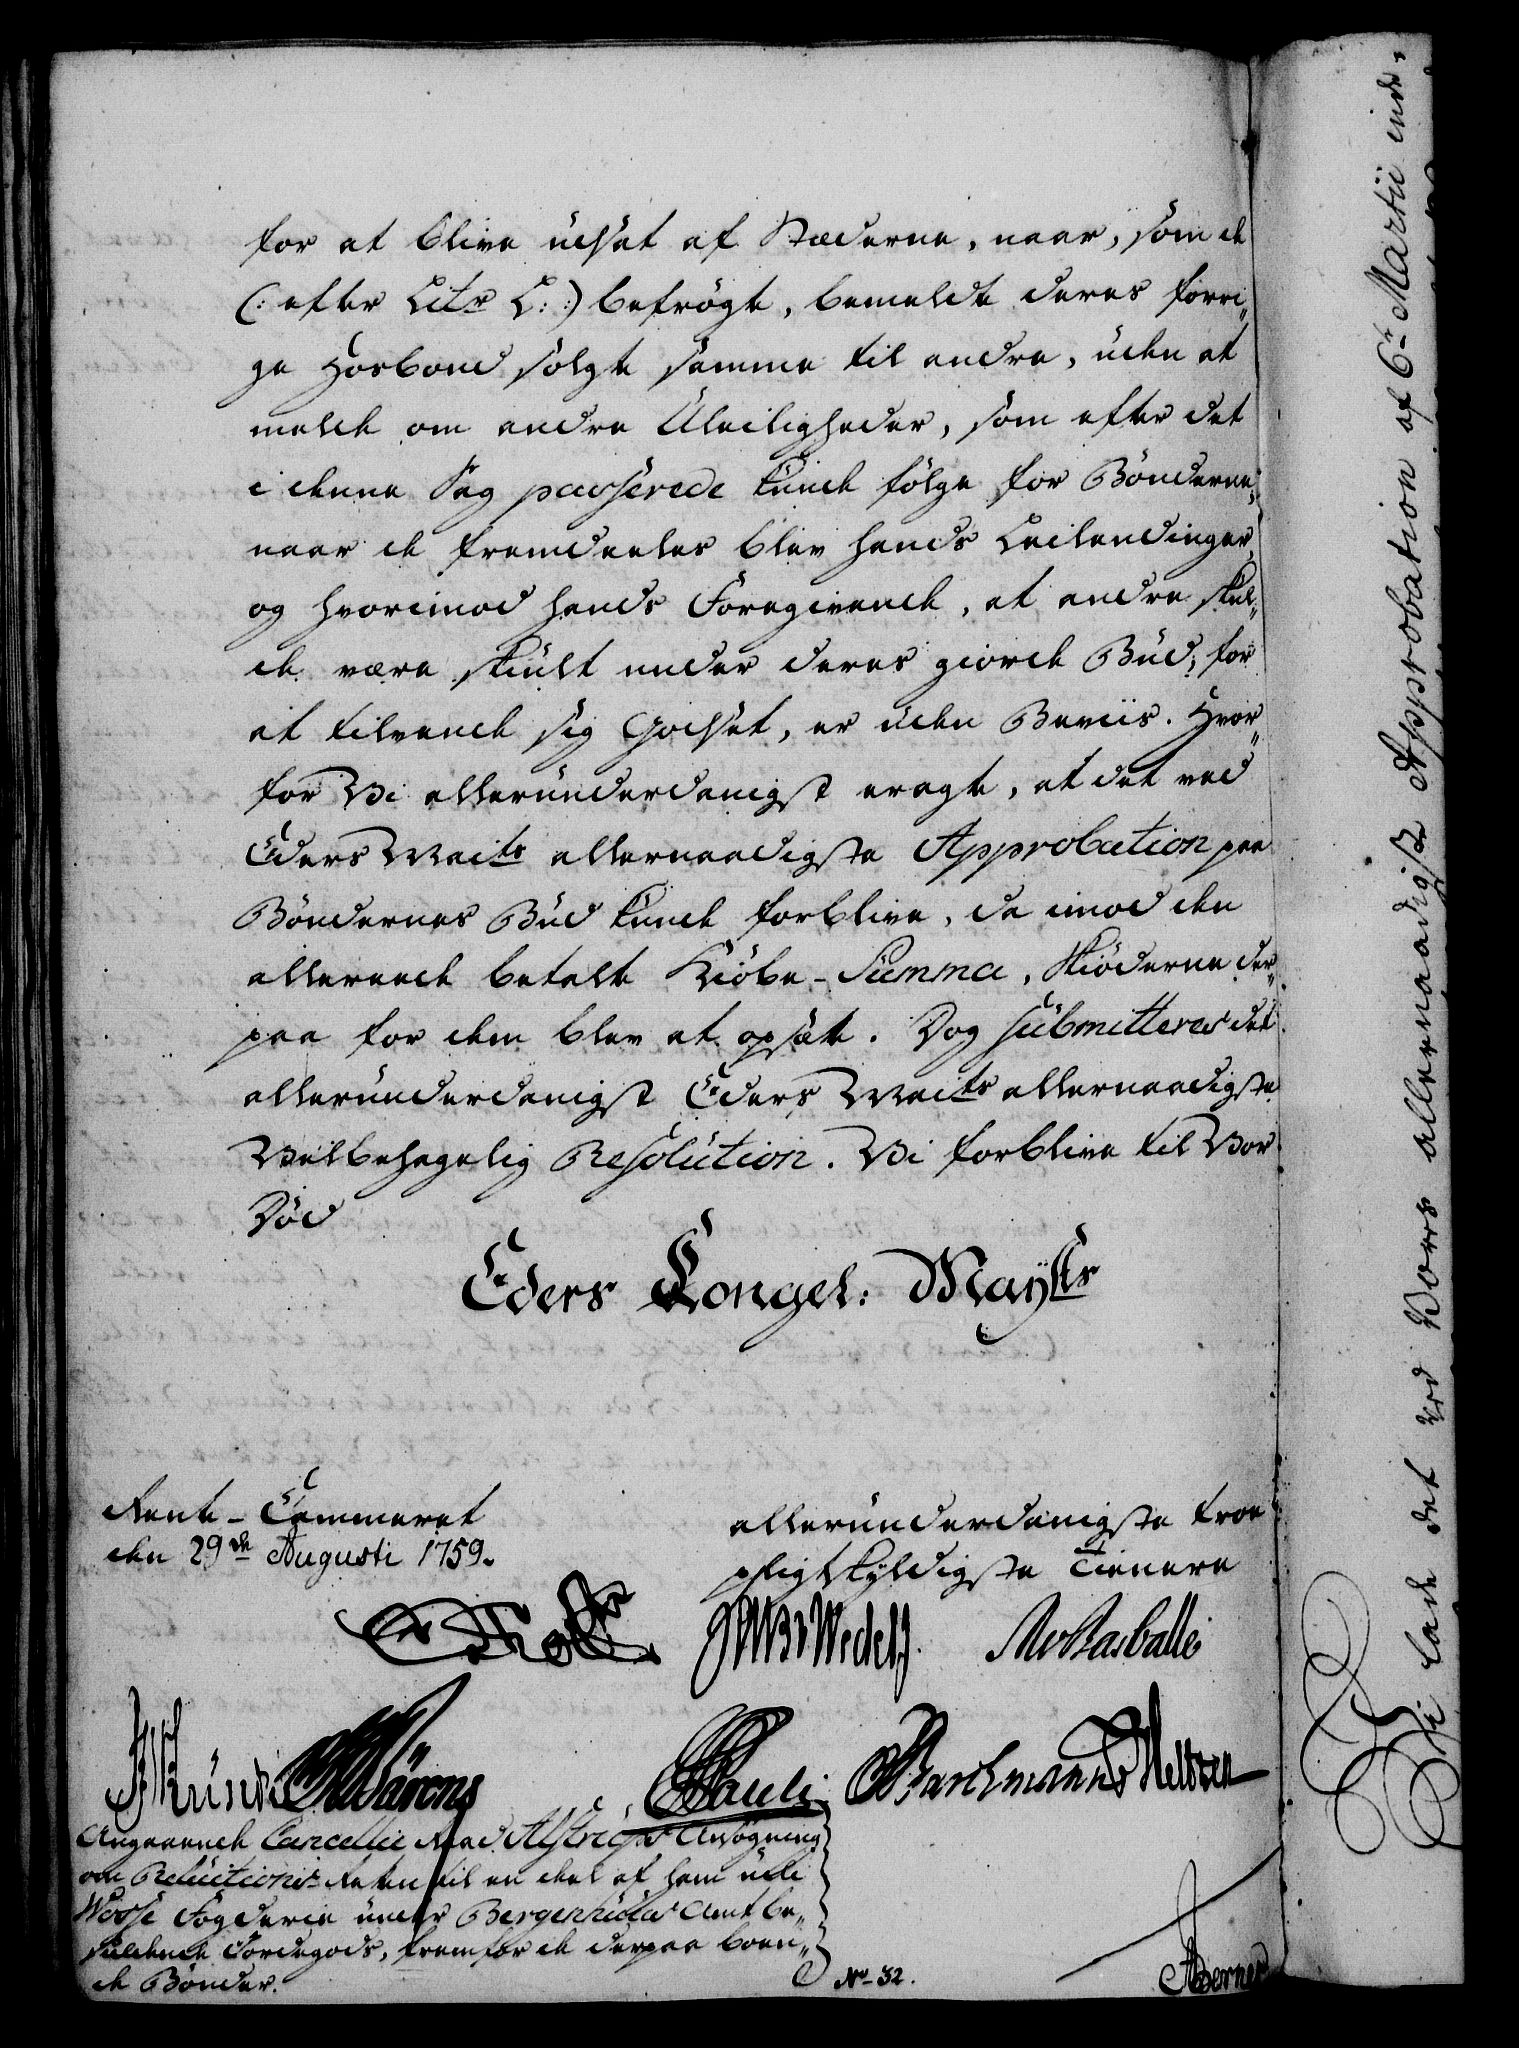 for at blive udsat af Stæderne, naar, som de
(: efter Litr L: :) befrögte, bemeldte deres forri-
ge Hosbond solgte samme til andre, uden at
melde om andre Uleiligheder, som efter det
i denne Sag passerede kunde fölge for Bönderne,
naar de fremdeeles blev hands Leilendinger,
og hvorimod hands Foregivende, at andre skul-
de være skiult under deres giorde Bud, for
at tilvende sig Godset, er uden Beviis. Hvor-
for Vi allerunderdanigst eragte, at det ved
Eders Maits allernaadigste Approbation paa
Böndernes Bud kunde forblive, da imod den
allereede betalte Kiöbe-Summa, Skiöderne der-
paa for dem blev at opsætte. Dog submitteres det
allerunderdanigst Eders Maits allernaadigste
Velbehagelig Resolution. Vi forblive til Vor
Död
Eders Kongel: Maytts
Rente-Cammeret
den 29de Augusti 1759.
allerunderdanigste troe
pligtskyldigste Tienere
Holst Wedell
Pauli Barchmann
Angaaende Cancellie Raad Ansögning
om Reluitions Retten til en deel af ham udi
Wosse Fogderie under Bergenhuus Amt be-
siddende Jordegods, fremfor de derpaa boen-
de Bönder.
No 32.
Berner
Vi lade det ved Vores allernaadigste Approbation af 6te Martii inde-